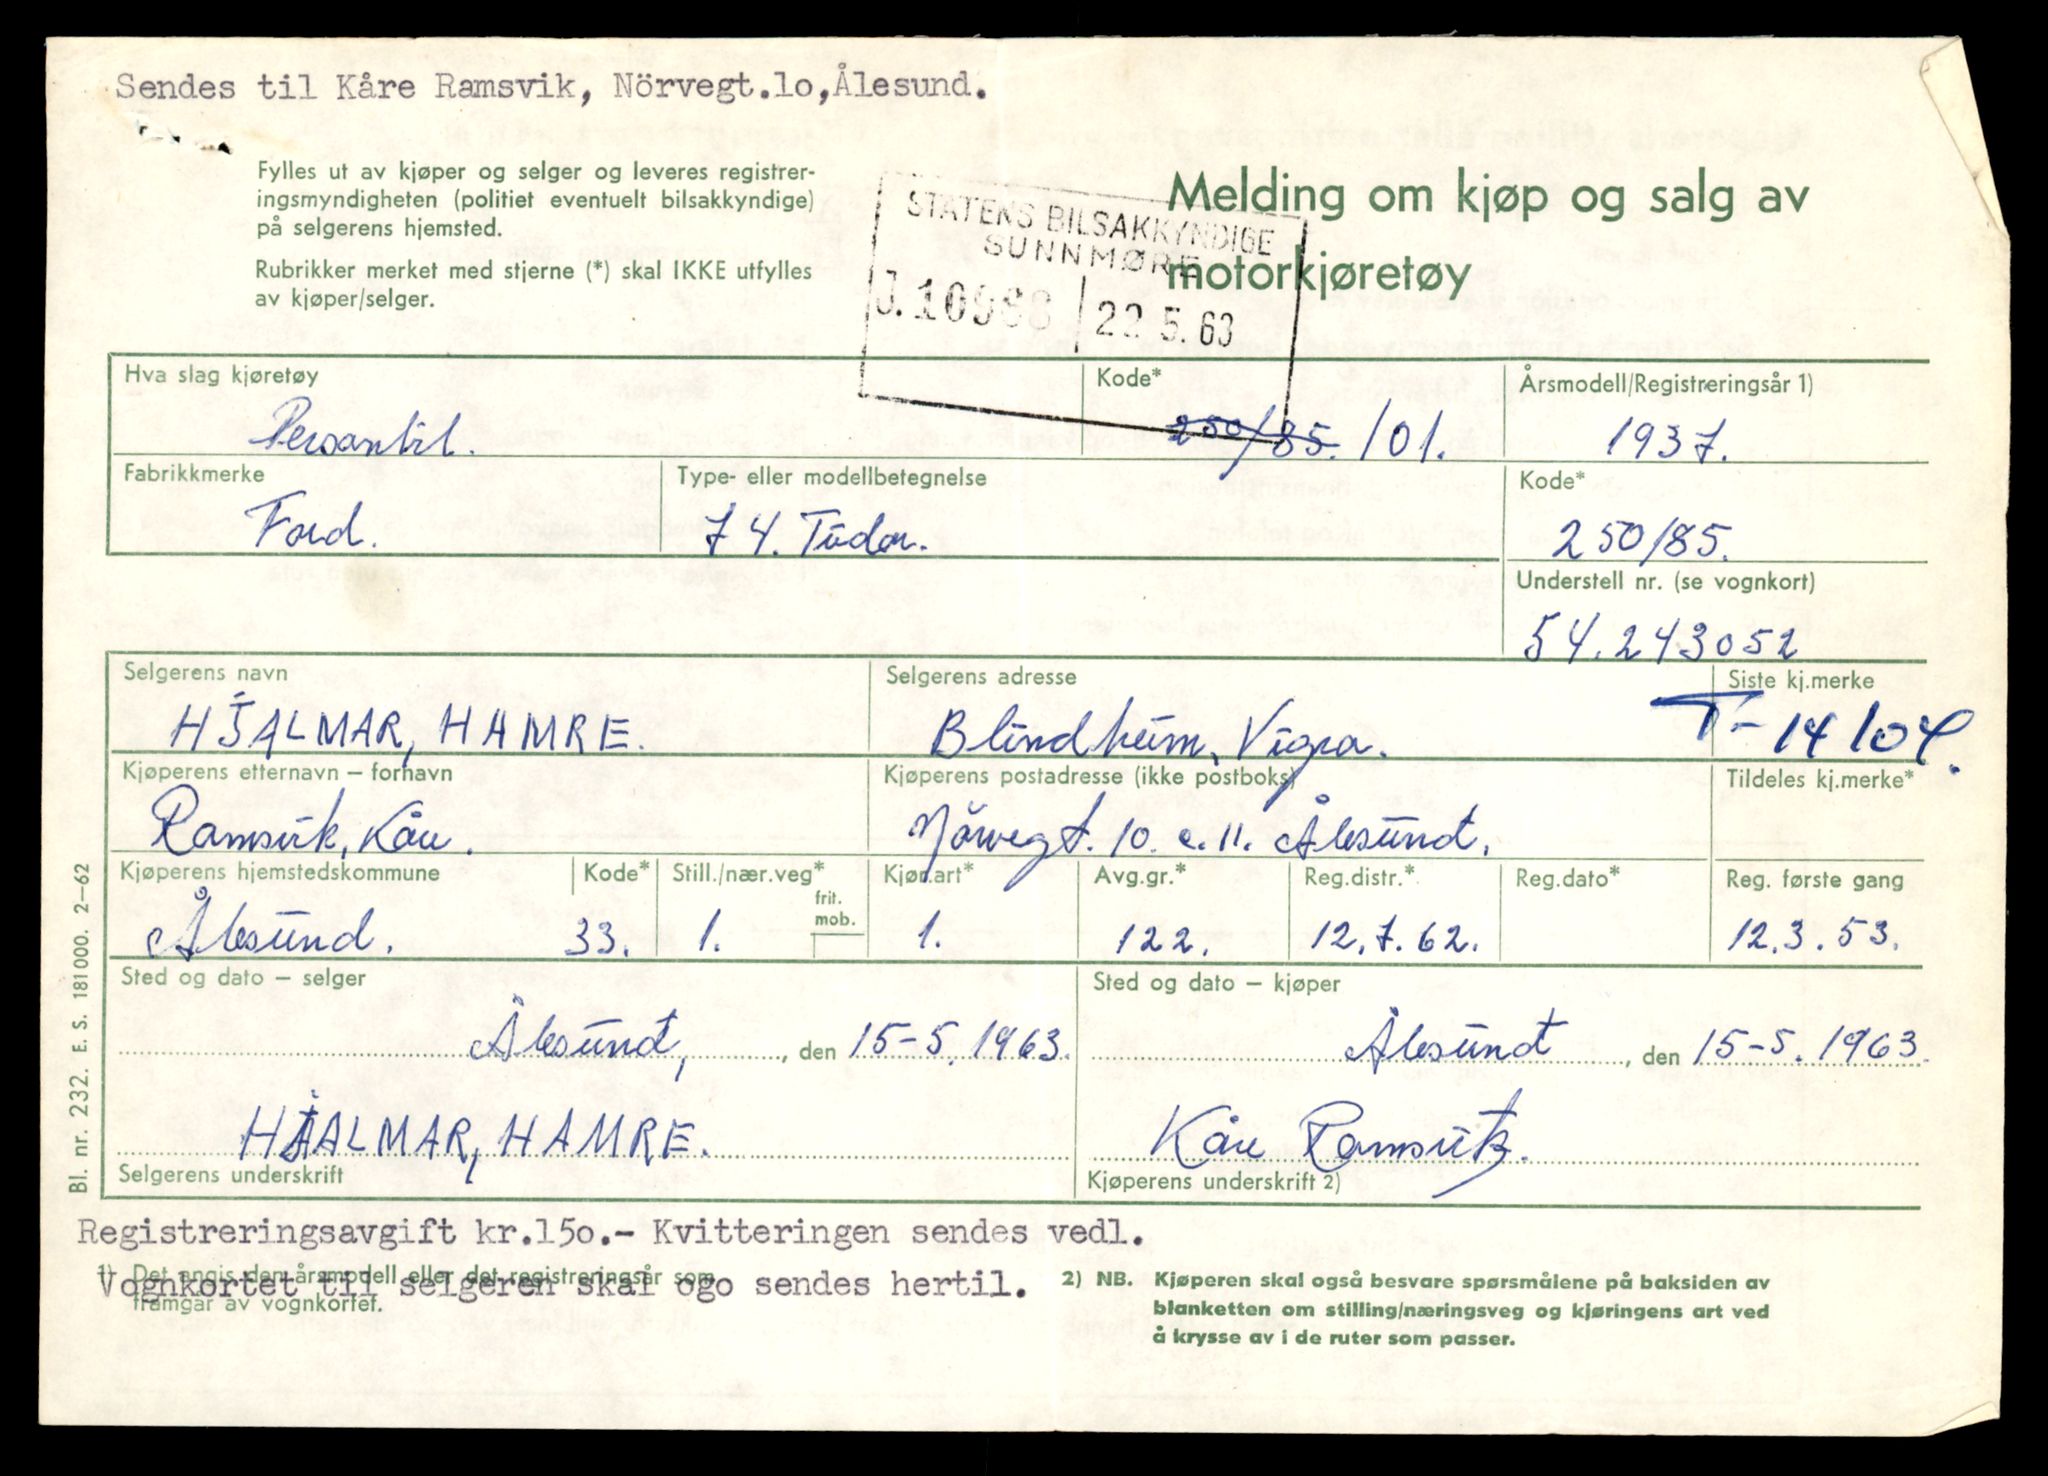 Sendes til Kåre Ramsvik, Nörvegt.lo,Ålesund.
Fylles ut av kjøper og selger og leveres registrer-
ingsmyndigheten (politiet eventuelt bilsakkyndige)
på selgerens hjemsted.
Rubrikker merket med stjerne (*) skal IKKE utfylles
av kjøper/selger.
Melding om kjøp og salg av
motorkjøretøy
STATENS BILSAKKYNDIGE
SUNNMØRE
J. 10968 22 5. 63
Hva slag kjøretøy Kode* Årsmodell/Registreringsår 1)
Personbil. 250/85. /01. 1937.
Fabrikkmerke Type- eller modellbetegnelse Kode*
Ford. 74. Tudor. 250/85.
Understell nr. (se vognkort)
54.243052
Selgerens navn Selgerens adresse Siste kj.merke
HJALMAR, HAMRE. Blindheim, Vigra. T-14104.
Kjøperens etternavn – fornavn Kjøperens postadresse (ikke postboks) Tildeles kj.merke*
Ramsvik, Kåre. Nörvegt. 10. e. 11. Ålesund.
Kjøperens hjemstedskommune Kode* Still./nær.veg* Kjør.art* Avg.gr.* Reg.distr.* Reg.dato* Reg. første gang
frit.
mob.
Ålesund. 33. 1. 1. 122. 12.7.62. 12.3.53.
Sted og dato – selger Sted og dato – kjøper
Ålesund, , den 15-5. 1963. Ålesund , den 15-5. 1963.
HJALMAR, HAMRE. Kåre Ramsvik.
Selgerens underskrift Kjøperens underskrift 2)
Registreringsavgift kr.15o.- Kvitteringen sendes vedl.
Vognkortet til selgeren skal ogo sendes hertil.
1) Det angis den årsmodell eller det registreringsår som
framgår av vognkortet.
2) NB. Kjøperen skal også besvare spørsmålene på baksiden av
blanketten om stilling/næringsveg og kjøringens art ved
å krysse av i de ruter som passer.
Bl. nr. 232. E. S. 181000. 2–62